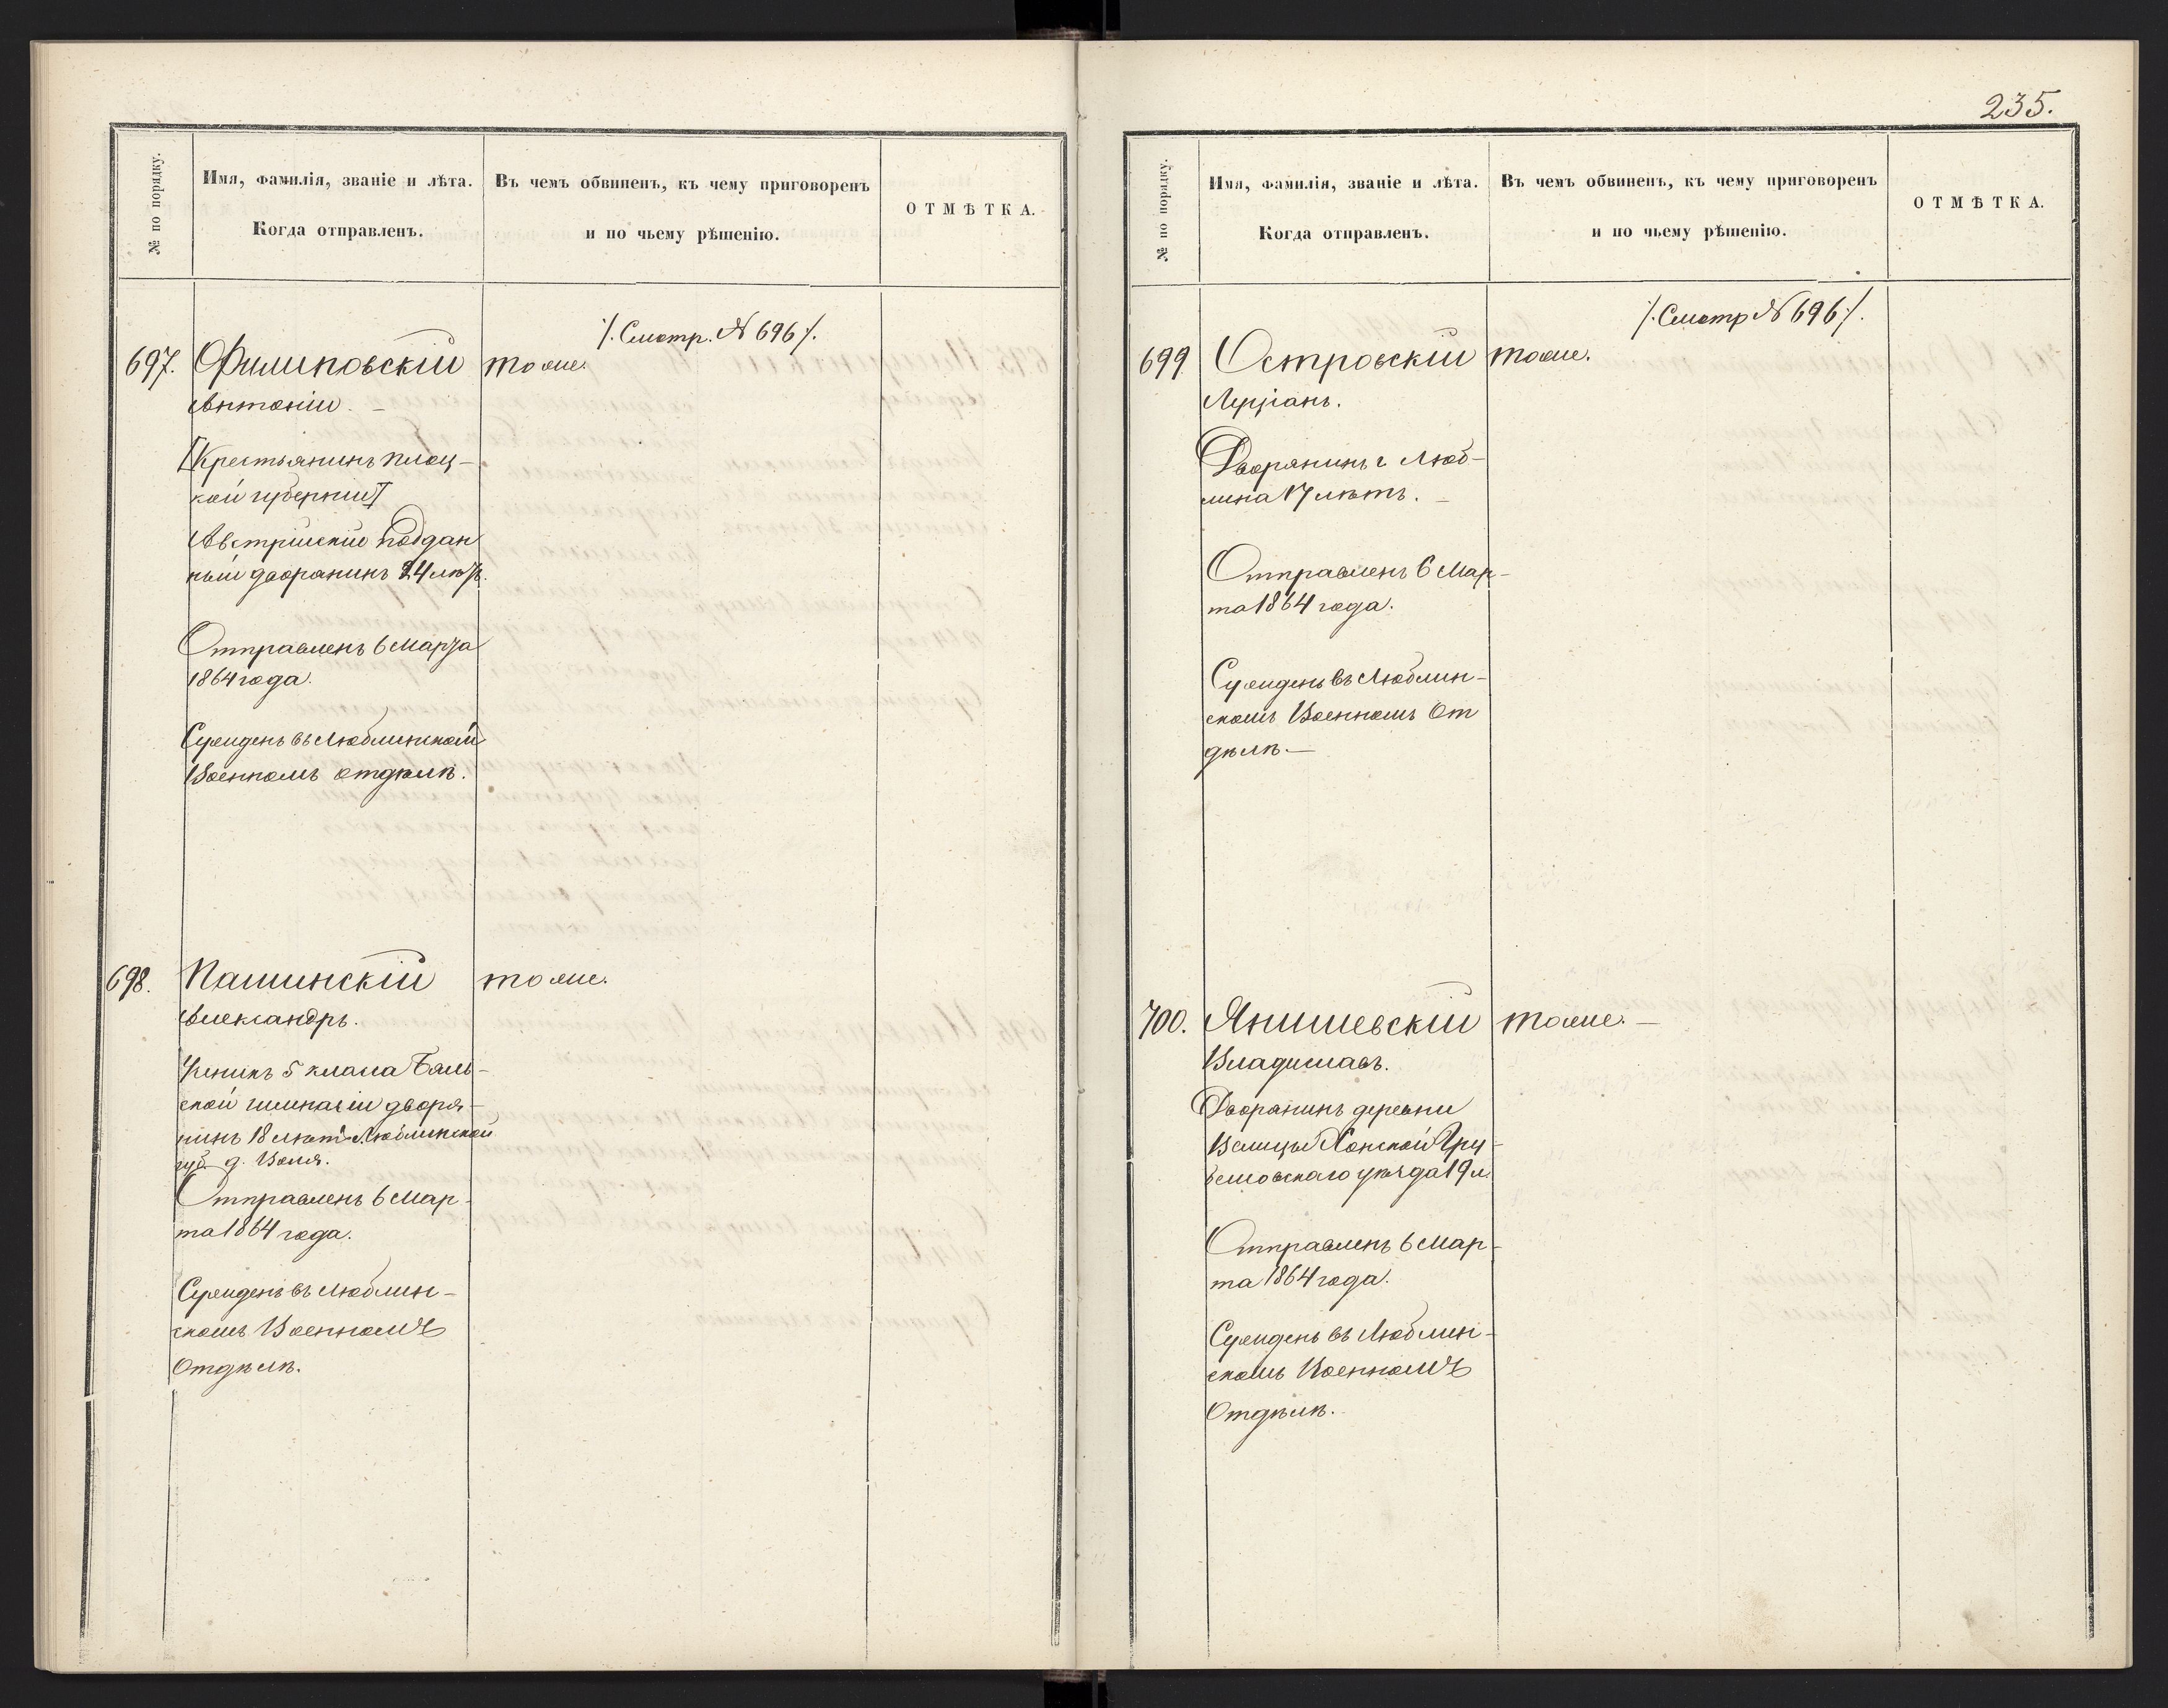 № по порядку.
Имя, фамилія, званіе и лѣта.
Когда отправленъ.
Въ чемъ обвиненъ, къ чему приговоренъ
и по чьему рѣшенію.
ОТМѢТКА.
/. Смотр. № 696 /.
697. Филиповскій тоже.
Антоній. –
[Крестьянинъ плоц-
кой губерніи]
Австрійскій поддан
ный дворянинъ 24 лѣтъ.
Отправленъ 6 Марта
1864 года.
Сужденъ въ Люблинскомъ
Военномъ отдѣлѣ.
698. Пашинскій тоже.
Александръ.
Ученикъ 5 класа Бяль-
ской гимназіи дворя-
нинъ 18 лѣтъ Люблинской
губ. д. Воля.
Отправленъ 6 Мар-
та 1864 года.
Сужденъ въ Люблин-
скомъ Военномъ
Отдѣлѣ.
235.
№ по порядку.
Имя, фамилія, званіе и лѣта.
Когда отправленъ.
Въ чемъ обвиненъ, къ чему приговоренъ
и по чьему рѣшенію.
ОТМѢТКА.
/. Смотр № 696 /.
699 Островскій тоже.
Луціанъ.
Дворянинъ г Люб-
лина 17 лѣтъ. –
Отправленъ 6 Мар-
та 1864 года.
Сужденъ въ Люблин-
скомъ Военномъ От
дѣлѣ. —
700. Янишевскій тоже. —
Владиславъ.
Дворянинъ деревни
Гру-
бешовскаго уѣзда 19 л.
Отправленъ 6 Мар-
та 1864 года.
Сужденъ въ Люблин-
скомъ Военномъ
Отдѣлѣ.